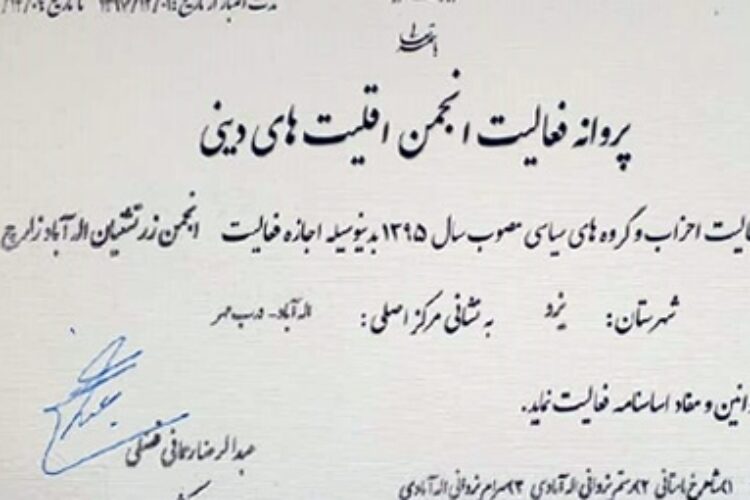 مدت اعتبار از تاریخ: ۱۳۹۷/۱۲/۰۹ تا تاریخ: ۱۲/۰۹/
پروانه فعالیت انجمن اقلیت های دینی
عالیت احزاب و گروه های سیاسی مصوب سال ۱۳۹۵ بدینوسیله اجازه فعالیت انجمن زرتشتیان اله آباد زارچ
شهرستان: یزد به نشانی مرکز اصلی: اله آباد- درب مهر
وانین و مفاد اساسنامه فعالیت نماید.
عبدالرضا رحمانی فضلی
۲-رستم یزدانی اله آبادی ۳-بهرام یزدانی اله آبادی